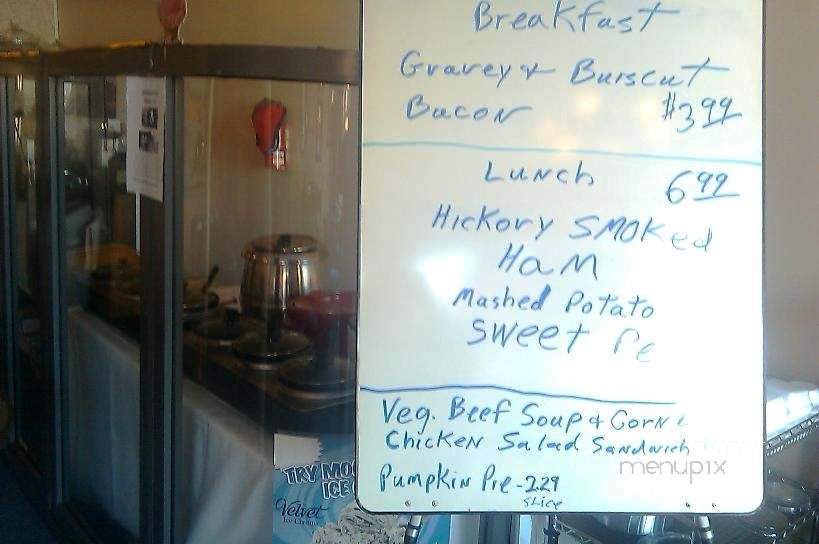 Breakfast
Gravey & Buiscut
Bacon $3.99
Lunch 6.99
Hickory SMOKed
Ham
Mashed Potato
SWeet Pe
Veg. Beef Soup & Corn
Chicken Salad Sandwich
Pumpkin Pie - 2.29
Slice
TRY MO
ICE
Velvet
Ice Cream
menupix